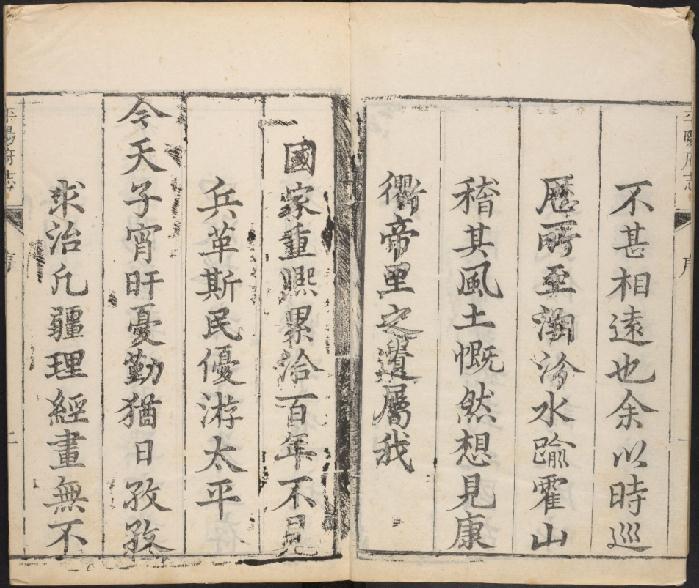 不甚相遠也余以時巡
歷所至溯汾水踰霍山
稽其風土慨然想見康
衢帝里之遺屬我
國家重熙累洽百年不見
兵革斯民優游太平
今天子宵旰憂勤猶日孜孜
求治凡疆理經畫無不
平陽府志
序